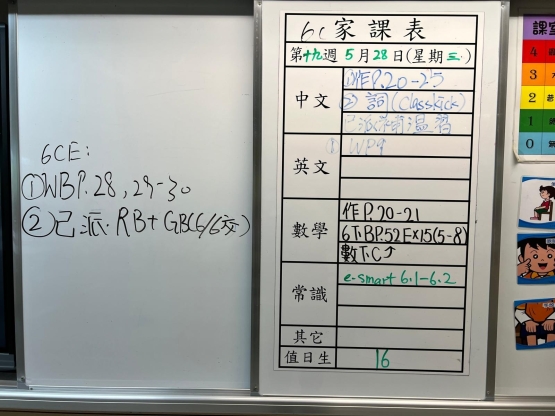 6CE:
①WBP.28, 29-30
②已派: RB+GBC(6/6交)
6C家課表
第十九週 5月28日(星期三)
中文
①作P.20-25
②詞(Classkick)
已派 溫習
英文
① WP9
數學
作P.20-21
6下BP.52Ex15(5-8)
數下C
常識
e-smart 6.1-6.2
其它
值日生
16
課室
4
3
2
1
0